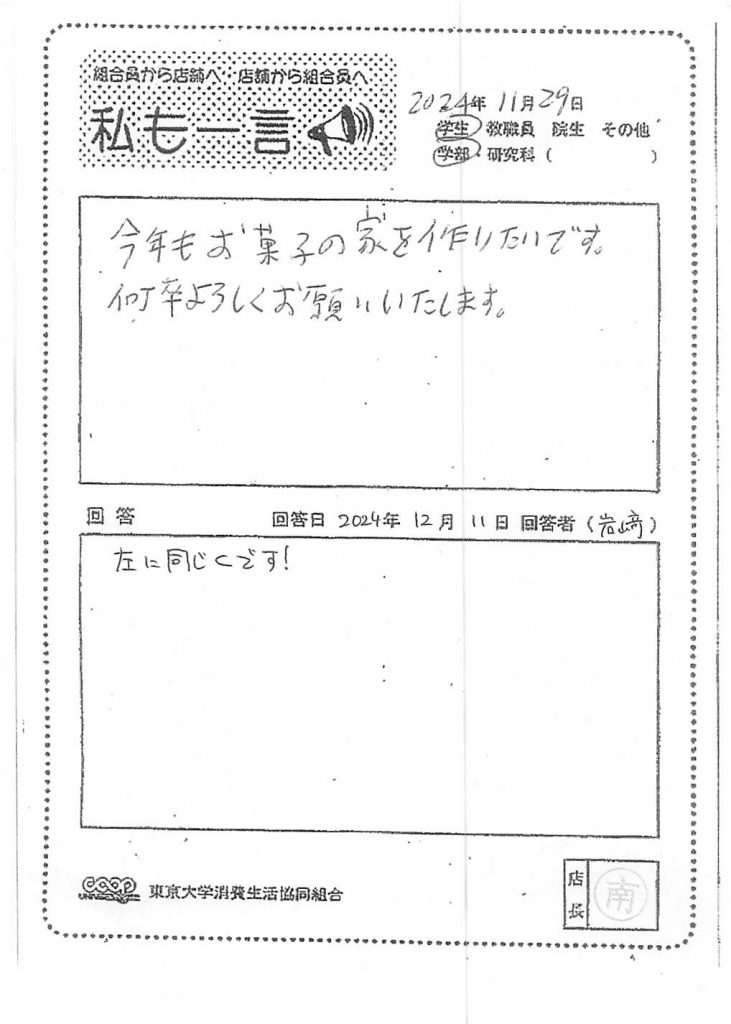 組合員から店舗へ 店舗から組合員へ
私も一言
2024年 11月29日
学生 教職員 院生 その他
学部・研究科（ ）
今年もお菓子の家を作りたいです。
何卒よろしくお願いいたします。
回答
回答日 2024年 12月 11日 回答者（岩﨑）
左に同じくです!
coop
東京大学消費生活協同組合
店長
南